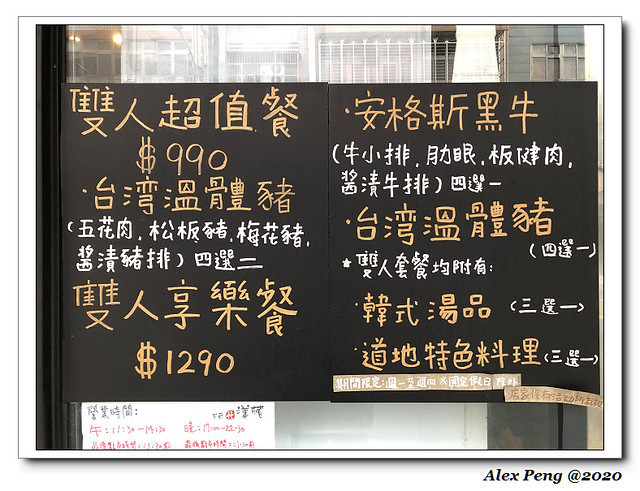 雙人超值餐
$990
·台湾溫體豬
(五花肉.松板豬.梅花豬.
醬漬豬排)四選二
雙人享樂餐
$1290
·安格斯黑牛
(牛小排.肋眼.板腱肉.
醬漬牛排)四選一
·台湾溫體豬
(四選一)
*雙人套餐均附有:
·韓式湯品(三選一)
·道地特色料理(三選一)
期間限定:週一至週四&國定假日除外
店家保有活動
營業時間:
午:11:30-14:30
晚:17:00-22:30
Alex Peng @2020